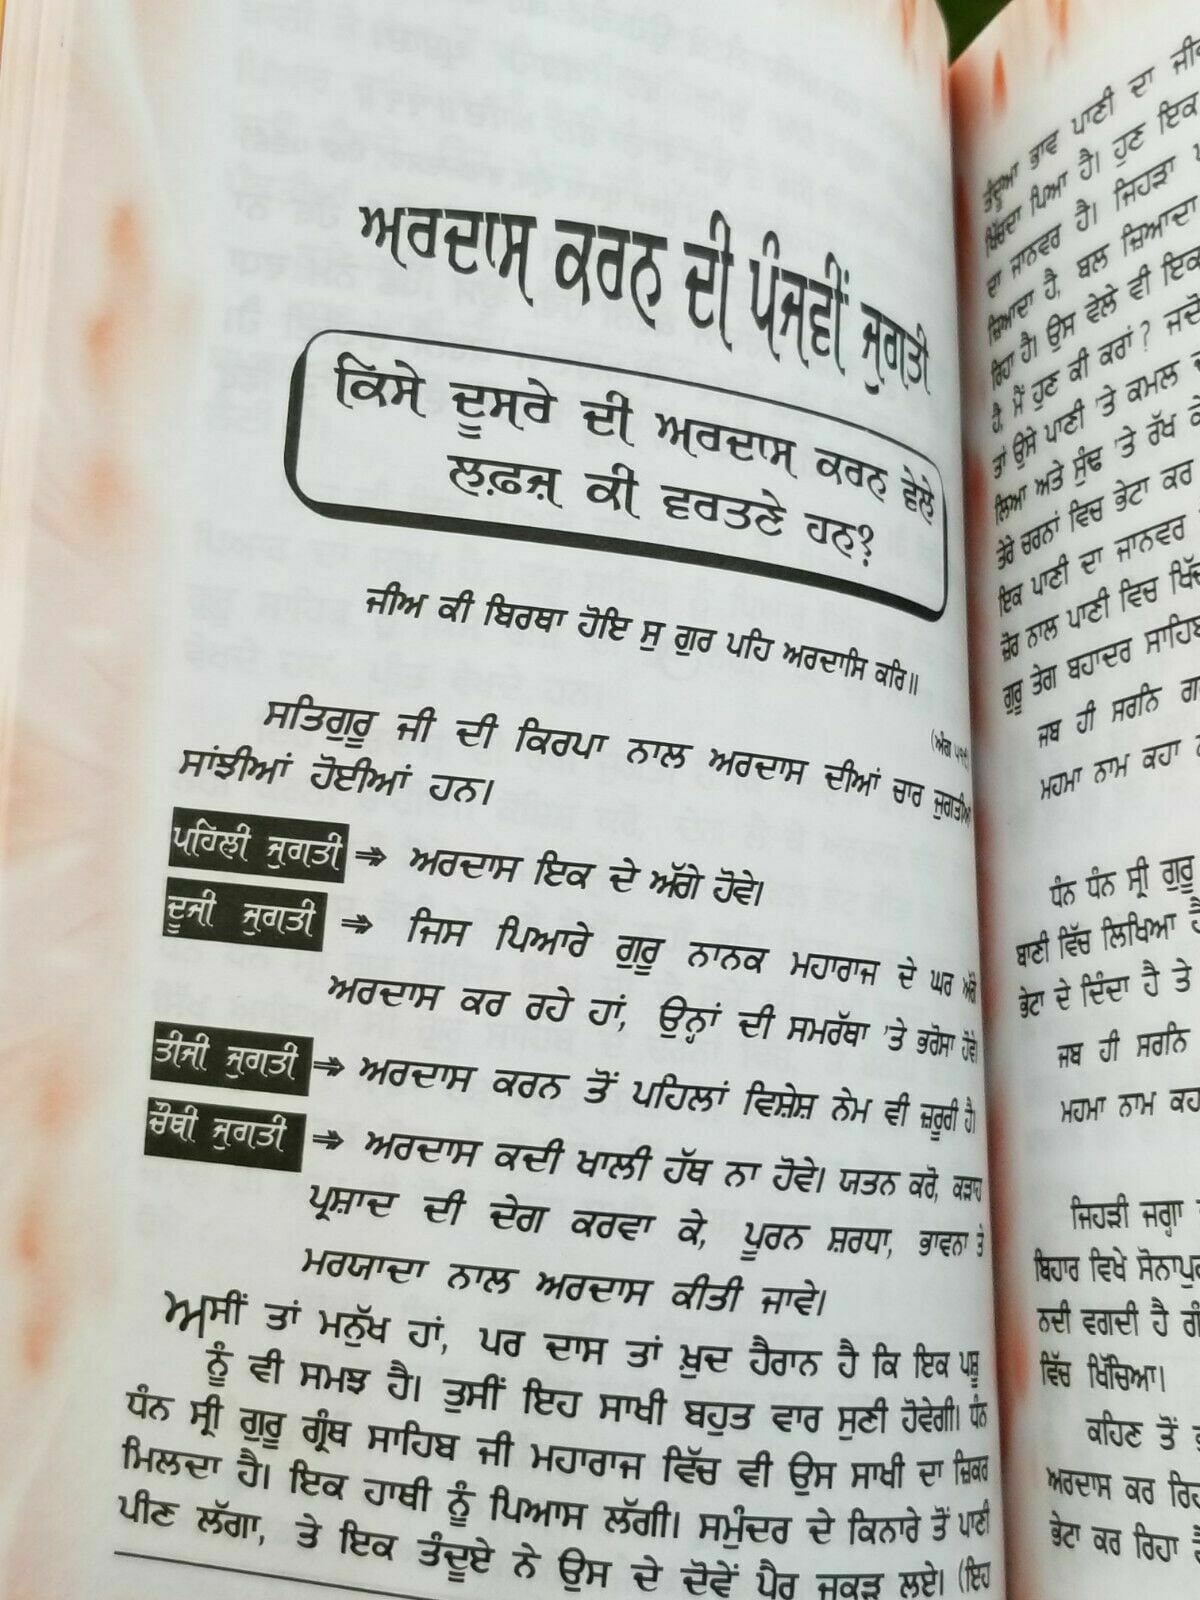 ਅਰਦਾਸ ਕਰਨ ਦੀ ਪੰਜਵੀਂ ਜੁਗਤੀ
ਕਿਸੇ ਦੂਸਰੇ ਦੀ ਅਰਦਾਸ ਕਰਨ ਵੇਲੇ
ਲਫ਼ਜ਼ ਕੀ ਵਰਤਣੇ ਹਨ?
ਜੀਅ ਕੀ ਬਿਰਥਾ ਹੋਇ ਸੁ ਗੁਰ ਪਹਿ ਅਰਦਾਸਿ ਕਰਿ॥
(ਅੰਗ ੫੧੯)
ਸਤਿਗੁਰੂ ਜੀ ਦੀ ਕਿਰਪਾ ਨਾਲ ਅਰਦਾਸ ਦੀਆਂ ਚਾਰ ਜੁਗਤੀਆਂ
ਸਾਂਝੀਆਂ ਹੋਈਆਂ ਹਨ।
ਪਹਿਲੀ ਜੁਗਤੀ ⇒ ਅਰਦਾਸ ਇਕ ਦੇ ਅੱਗੇ ਹੋਵੇ।
ਦੂਜੀ ਜੁਗਤੀ ⇒ ਜਿਸ ਪਿਆਰੇ ਗੁਰੂ ਨਾਨਕ ਮਹਾਰਾਜ ਦੇ ਘਰ ਅੱਗੇ
ਅਰਦਾਸ ਕਰ ਰਹੇ ਹਾਂ, ਉਨ੍ਹਾਂ ਦੀ ਸਮਰੱਥਾ 'ਤੇ ਭਰੋਸਾ ਹੋਵੇ।
ਤੀਜੀ ਜੁਗਤੀ ⇒ ਅਰਦਾਸ ਕਰਨ ਤੋਂ ਪਹਿਲਾਂ ਵਿਸ਼ੇਸ਼ ਨੇਮ ਵੀ ਜ਼ਰੂਰੀ ਹੈ।
ਚੌਥੀ ਜੁਗਤੀ ⇒ ਅਰਦਾਸ ਕਦੀ ਖਾਲੀ ਹੱਥ ਨਾ ਹੋਵੇ। ਯਤਨ ਕਰੋ, ਕੜਾਹ
ਪ੍ਰਸ਼ਾਦ ਦੀ ਦੇਗ ਕਰਵਾ ਕੇ, ਪੂਰਨ ਸ਼ਰਧਾ, ਭਾਵਨਾ ਤੇ
ਮਰਯਾਦਾ ਨਾਲ ਅਰਦਾਸ ਕੀਤੀ ਜਾਵੇ।
ਅਸੀਂ ਤਾਂ ਮਨੁੱਖ ਹਾਂ, ਪਰ ਦਾਸ ਤਾਂ ਖ਼ੁਦ ਹੈਰਾਨ ਹੈ ਕਿ ਇਕ ਪਸ਼ੂ
ਨੂੰ ਵੀ ਸਮਝ ਹੈ। ਤੁਸੀਂ ਇਹ ਸਾਖੀ ਬਹੁਤ ਵਾਰ ਸੁਣੀ ਹੋਵੇਗੀ। ਧੰਨ
ਧੰਨ ਸ੍ਰੀ ਗੁਰੂ ਗ੍ਰੰਥ ਸਾਹਿਬ ਜੀ ਮਹਾਰਾਜ ਵਿੱਚ ਵੀ ਉਸ ਸਾਖੀ ਦਾ ਜ਼ਿਕਰ
ਮਿਲਦਾ ਹੈ। ਇਕ ਹਾਥੀ ਨੂੰ ਪਿਆਸ ਲੱਗੀ। ਸਮੁੰਦਰ ਦੇ ਕਿਨਾਰੇ ਤੋਂ ਪਾਣੀ
ਪੀਣ ਲੱਗਾ, ਤੇ ਇਕ ਤੰਦੂਏ ਨੇ ਉਸ ਦੇ ਦੋਵੇਂ ਪੈਰ ਜਕੜ ਲਏ। (ਇਹ
ਤੰਦੂਆ ਭਾਵ ਪਾਣੀ ਦਾ
ਖਿੱਚਦਾ ਪਿਆ ਹੈ। ਹੁਣ ਇਕ
ਦਾ ਜਾਨਵਰ ਹੈ। ਜਿਹੜਾ
ਜ਼ਿਆਦਾ ਹੈ, ਬਲ ਜ਼ਿਆਦਾ
ਰਿਹਾ ਹੈ। ਉਸ ਵੇਲੇ ਵੀ ਇਕ
ਹੈ, ਮੈਂ ਹੁਣ ਕੀ ਕਰਾਂ? ਜਦੋਂ
ਤਾਂ ਉਸੇ ਪਾਣੀ 'ਤੇ ਕਮਲ
ਲਿਆ ਅਤੇ ਸੁੰਢ 'ਤੇ ਰੱਖ ਕੇ
ਤੇਰੇ ਚਰਨਾਂ ਵਿਚ ਭੇਟਾ ਕਰ
ਇਕ ਪਾਣੀ ਦਾ ਜਾਨਵਰ
ਜ਼ੋਰ ਨਾਲ ਪਾਣੀ ਵਿਚ
ਗੁਰੂ ਤੇਗ ਬਹਾਦਰ ਸਾਹਿਬ
ਜਬ ਹੀ ਸਰਨਿ
ਮਹਮਾ ਨਾਮ ਕਹਾ
ਧੰਨ ਧੰਨ ਸ੍ਰੀ ਗੁਰੂ
ਬਾਣੀ ਵਿੱਚ ਲਿਖਿਆ ਹੈ
ਭੇਟਾ ਦੇ ਦਿੰਦਾ ਹੈ ਤੇ
ਜਬ ਹੀ ਸਰਨਿ
ਮਹਮਾ ਨਾਮ
ਜਿਹੜੀ ਜਗ੍ਹਾ
ਬਿਹਾਰ ਵਿਖੇ
ਨਦੀ ਵਗਦੀ ਹੈ
ਵਿੱਚ ਖਿੱਚਿਆ।
ਕਹਿਣ ਤੋਂ
ਅਰਦਾਸ ਕਰ
ਭੇਟਾ ਕਰ ਰਿਹਾ